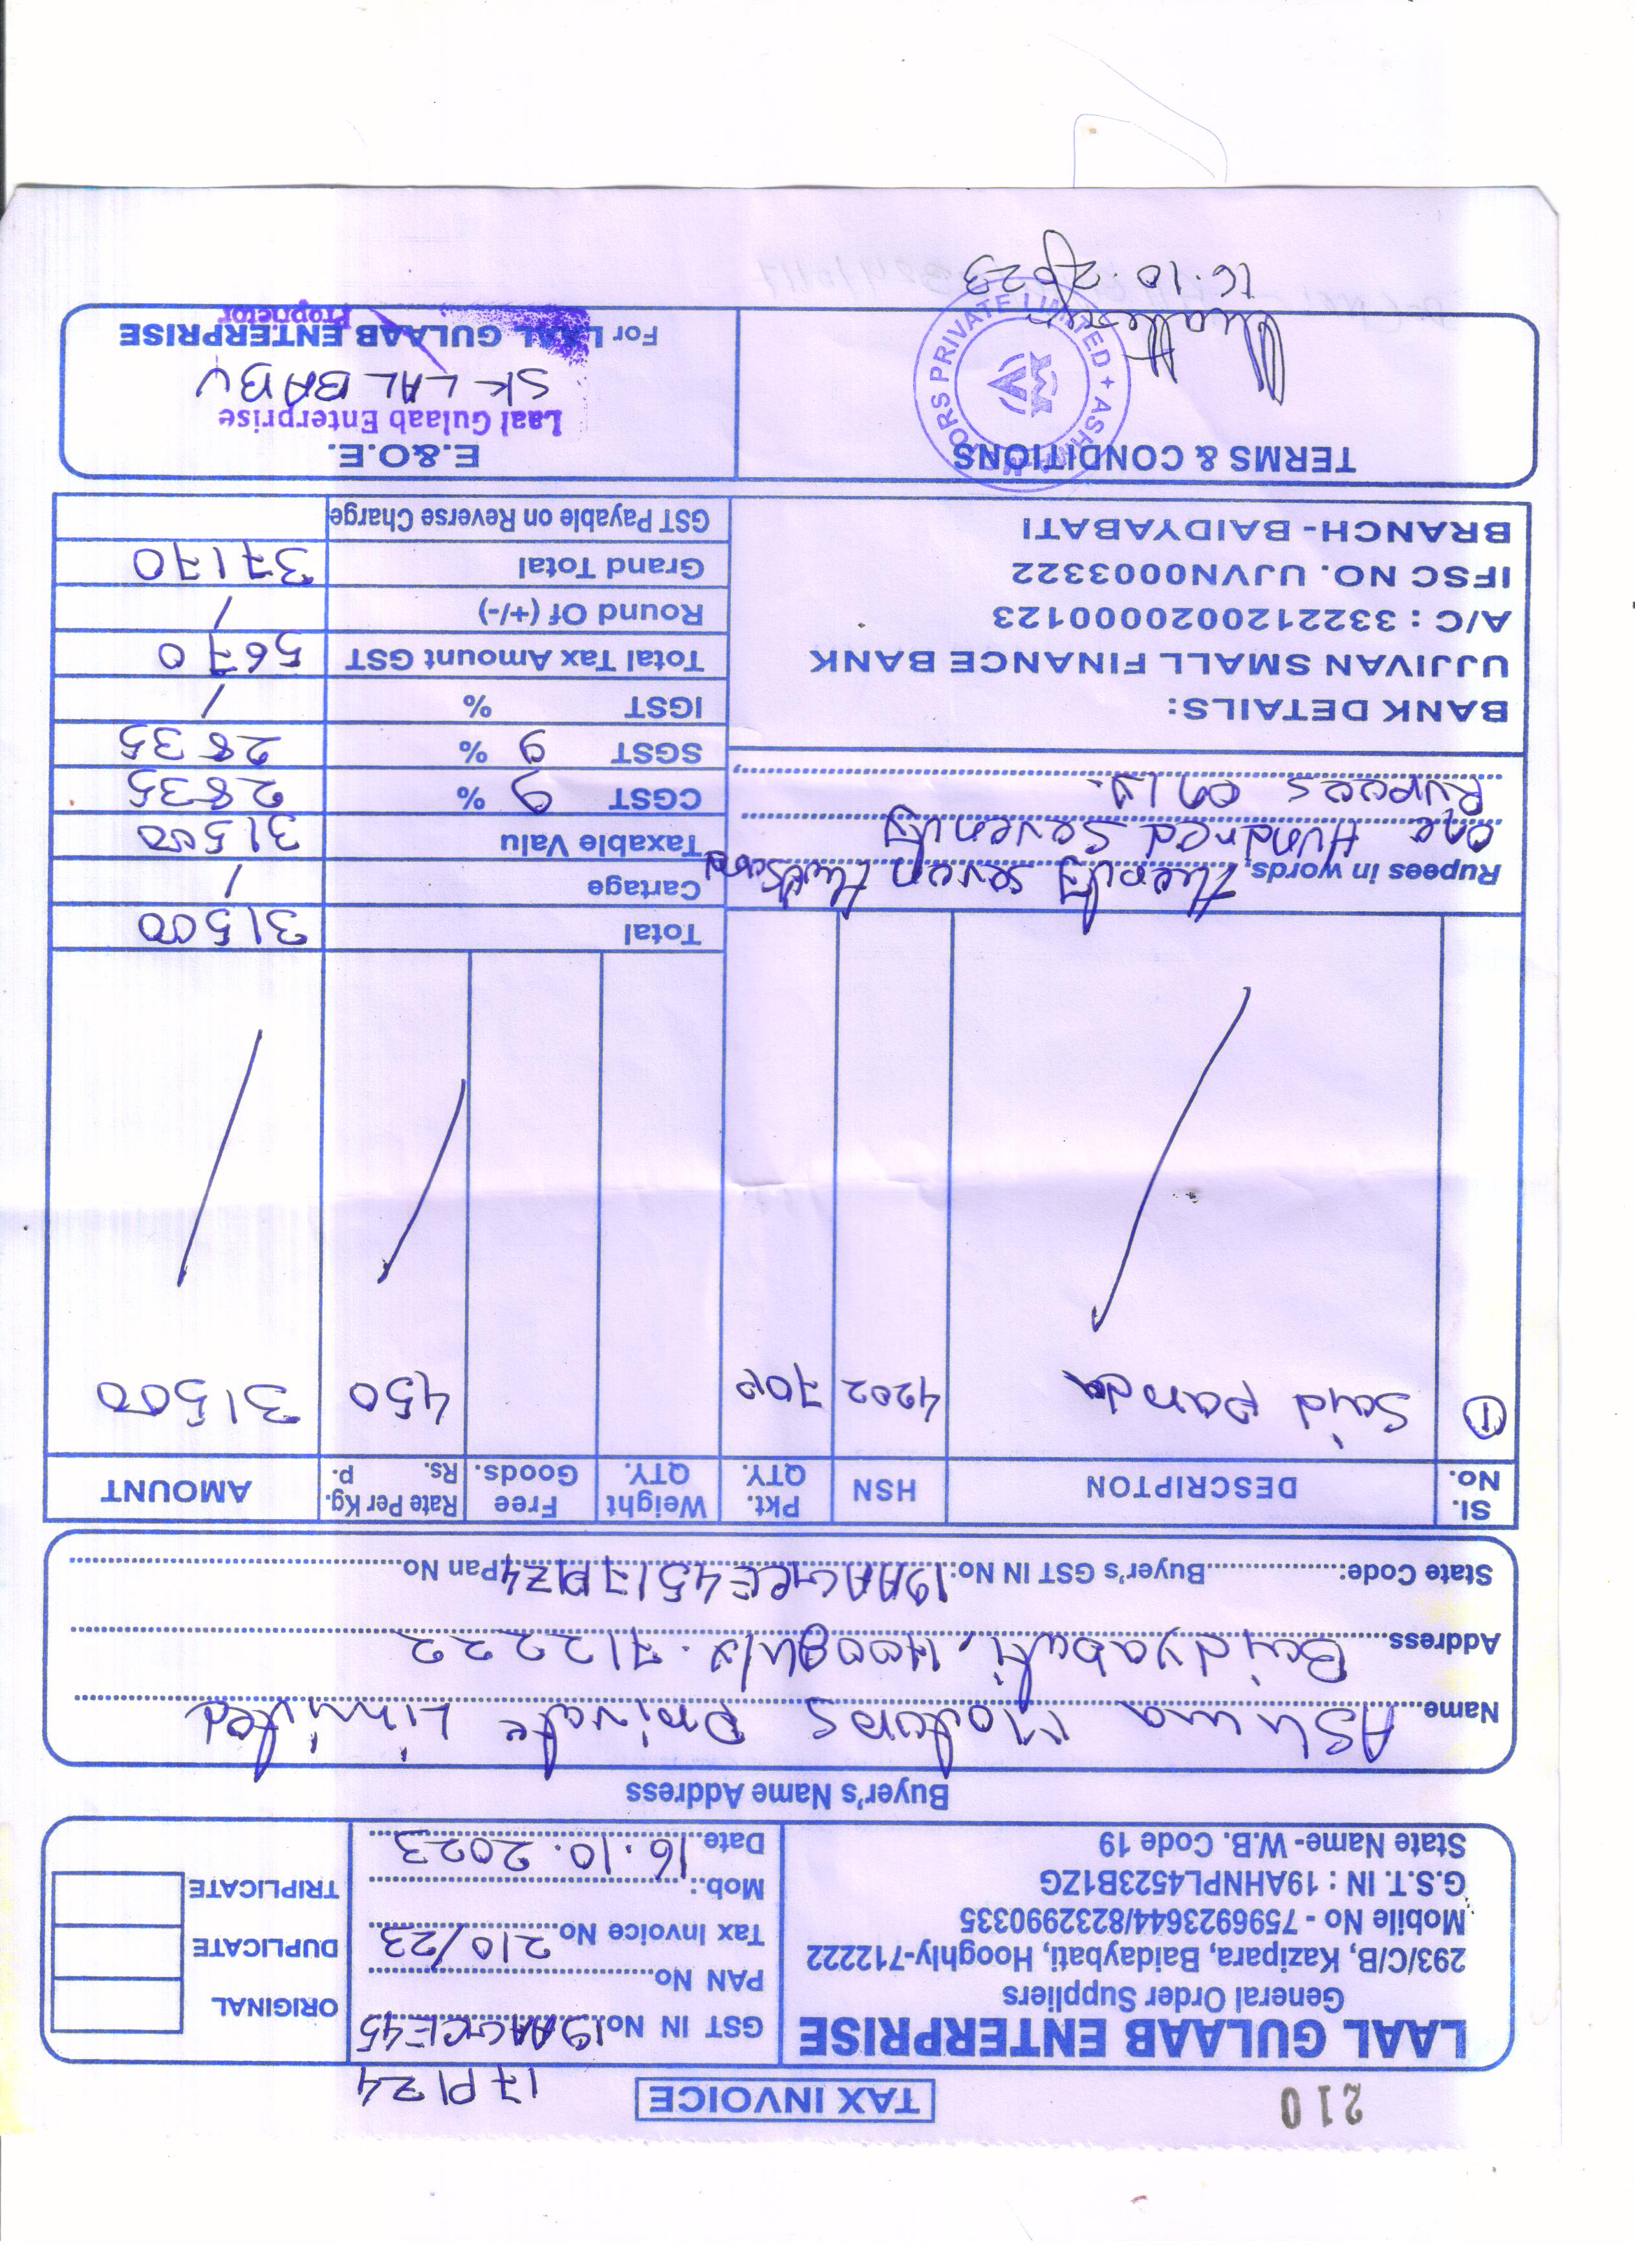 210
TAX INVOICE
17P1Z4
LAAL GULAAB ENTERPRISE
General Order Suppliers
293/C/B, Kazipara, Baidaybati, Hooghly-712222
Mobile No - 7596923644/8232990335
G.S.T. IN : 19AHNPL4523B1ZG
State Name- W.B. Code 19
GST IN No. 19AAGCE45
PAN No.
Tax Invoice No. 210/23
Mob.:
Date 16.10.2023
ORIGINAL
DUPLICATE
TRIPLICATE
Buyer's Name Address
Name AShma Motors Private Limited
Address Baidyabati, Hooghly. 712222
State Code: Buyer's GST IN No: 19AAGCE4517P1Z4 Pan No
Sl. No. DESCRIPTON HSN Pkt. QTY. Weight QTY. Free Goods. Rate Per Kg. Rs. p. AMOUNT
1 Said Panda 4202 70P 450 31500
Total 31500
Cartage /
Taxable Valu 31500
CGST 9 % 2835
SGST 9 % 2835
IGST % /
Total Tax Amount GST 5670
Round Of (+/-) /
Grand Total 37170
GST Payable on Reverse Charge
Rupees in words, seven
one Hundred Seventy
Rupees only.
BANK DETAILS:
UJJIVAN SMALL FINANCE BANK
A/C : 3322120020000123
IFSC NO. UJVN0003322
BRANCH- BAIDYABATI
TERMS & CONDITIONS
ASHMA MOTORS PRIVATE LIMITED
16.10.2023
E.&O.E.
Laal Gulaab Enterprise
SK LAL BABU
For LAAL GULAAB ENTERPRISE
Proprietor